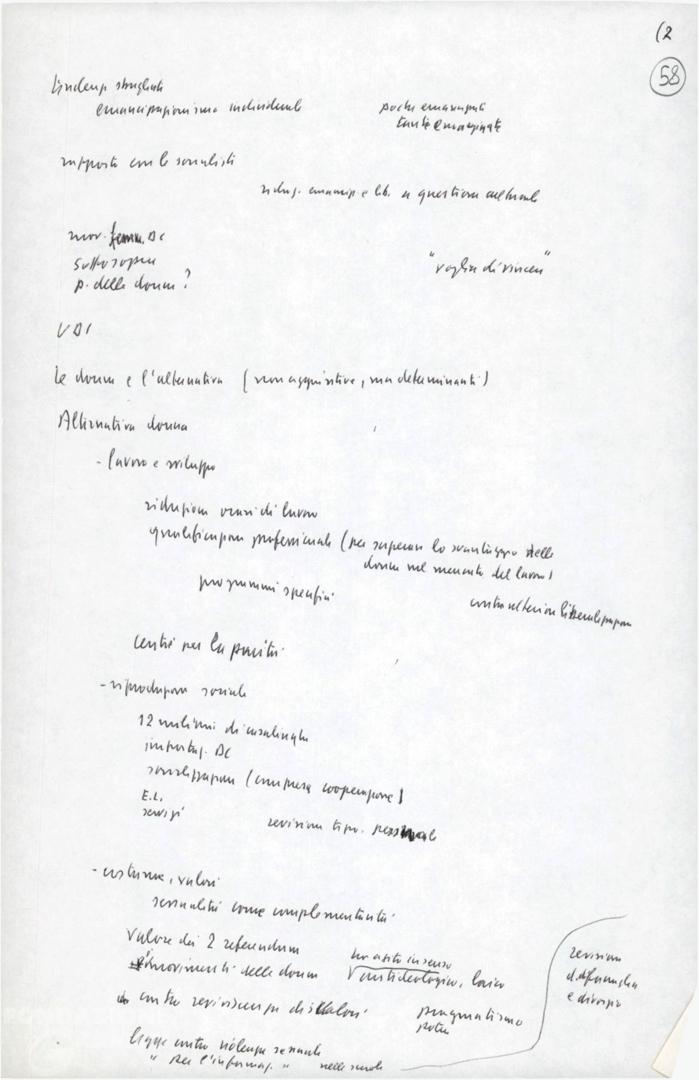 (2
58
emancipazionismo individuale
poche emancipate
tante emarginate
rapporto con le socialisti
riduz. emancip. e lib. a questione culturale
mov. femm. DC
sottosopra
p. delle donne?
"voglia di vincere"
UDI
Le donne e l'alternativa (non aggiuntive, ma determinanti)
Alternativa donna
- lavoro e sviluppo
riduzione orari di lavoro
qualificazione professionale (per superare lo svantaggio delle
donne nel mercato del lavoro)
programmi specifici
contro ulteriore liberalizzazione
centri per la parità
- riproduzione sociale
12 milioni di casalinghe
impostaz. DC
socializzazione (compresa cooperazione)
E.L.
servizi
revisione tipo. personale
- costume, valori
sessualità come complementarità
valore dei 2 referendum
movimenti delle donne
in senso
antideologico, laico
contro reviviscenza di valori
pragmatismo
legge contro violenza sessuale
" per l'informaz. " nelle scuole
revisione
d. famiglia
e divorzio